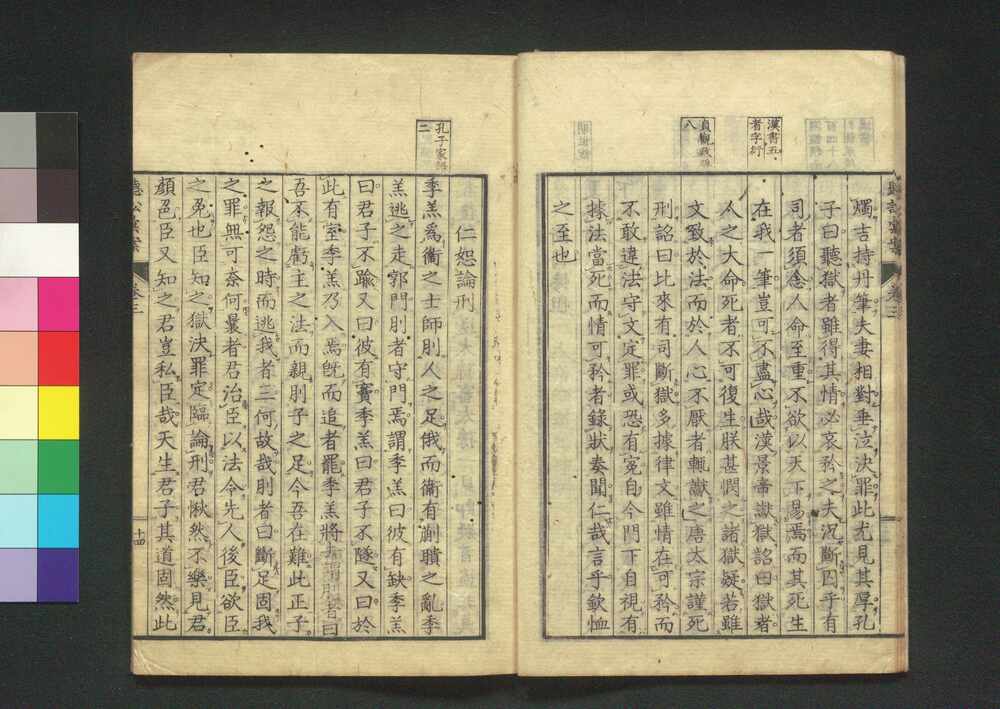 漢書五、
者字衍
貞觀政
八
燭吉持丹筆夫妻相對垂泣決罪此尤見其厚孔
子曰聽獄者雖得其情必哀矜之夫沉斷囚乎有
司者須念人命至重不欲以天下易焉而其死生
在我一筆豈可不盡心哉漢景帝讞獄詔曰獄者
人之大命死者不可復生朕甚憫之諸獄疑若雖
文致於法而於人心不厭者輒讞之唐太宗謹死
刑詔曰比來有司斷獄多據律文雖情在可矜而
不敢違法守文定罪或恐有冤自今門下自視有
據法當死而情可矜者錄狀奏聞仁哉言乎欽恤
之至也
孔子家語
二
仁恕論刑
季羔爲衞之士師刖人之足俄而衞有蒯聵之亂季
羔逃之走郭門刖者守門焉謂季羔曰彼有缺季羔
曰君子不踰又曰彼有竇季羔曰君子不隧又曰於
此有室季羔乃入焉旣而追者罷季羔將去謂刖者曰
吾不能虧主之法而親刖子之足今吾在難此正子
之報怨之時而逃我者三何故哉刖者曰斷足固我
之罪無可奈何曩者君治臣以法令先人後臣欲臣
之免也臣知之獄決罪定臨論刑君愀然不樂見君
顔色臣又知之君豈私臣哉天生君子其道固然此
卷三
十四